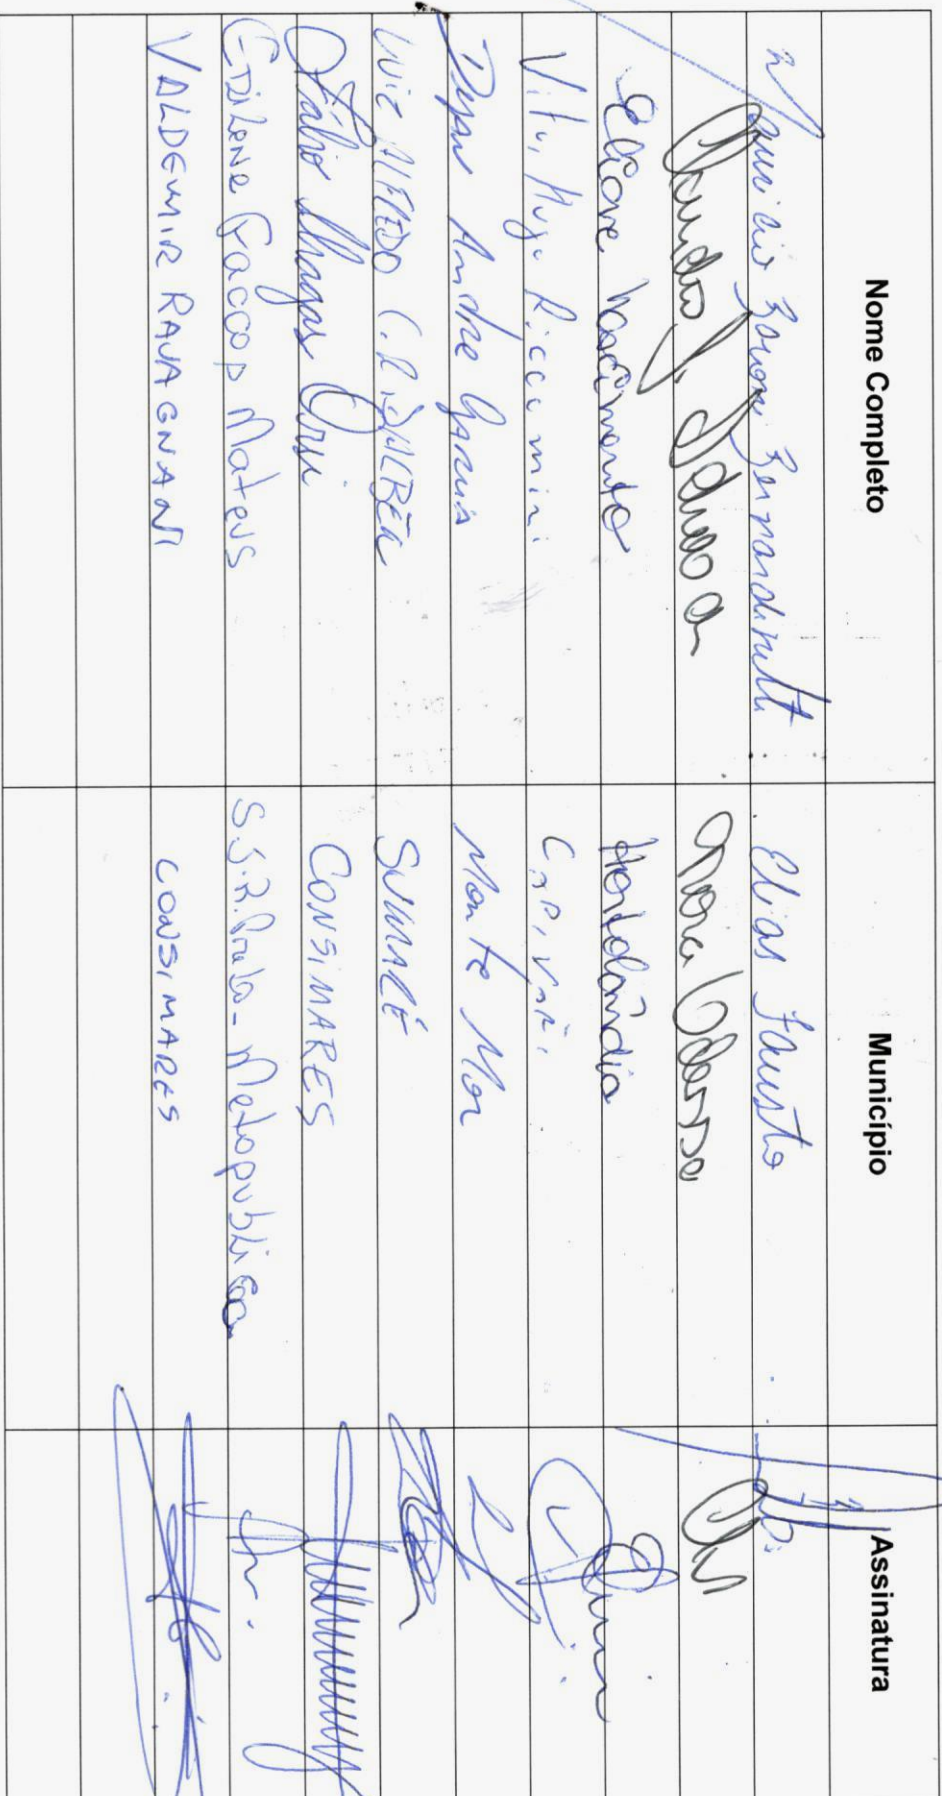 Nome Completo Município Assinatura
Maurício Baroni Bernardinetti Elias Fausto
Nova Odessa
Eliane Nascimento Hortolândia
Vitor Hugo Riccomini Capivari
André Garcia Monte Mor
Luiz Alfredo C. R. Dalben SUMARÉ
CONSIMARES
Edilene Mateus S.J.R.Preto - Metropública
VALDEMIR RAVAGNANI CONSIMARES